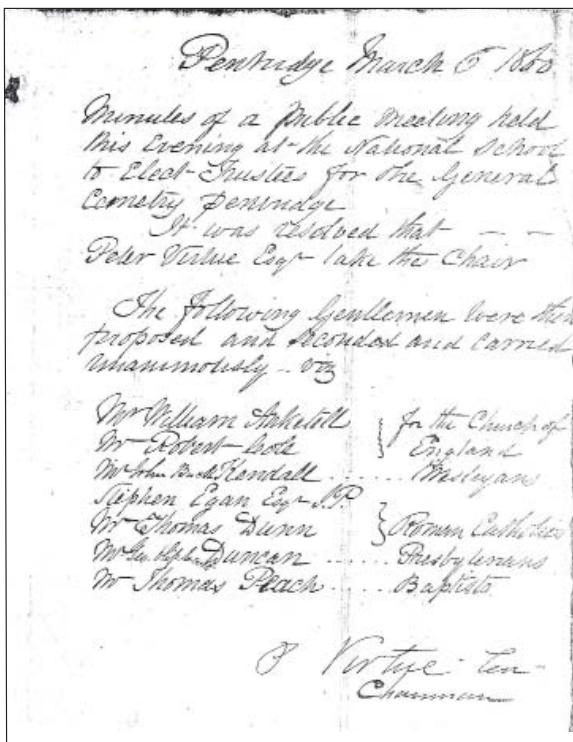 Pentridge March 6 1860
Minutes of a Public Meeting held
this Evening at the National School
to Elect Trustees for the General
Cemetry Pentridge
It was resolved that — —
Peter Virtue Esqr take the Chair
The following Gentlemen were then
proposed and seconded and carried
unanimously - viz
Mr William Anketell } for the Church of
Mr Robert England
Mr John Kendall ...... Wesleyans
Stephen Egan Esqr J.P.
Mr Thomas Dunn } Roman Catholics
Mr Duncan ...... Presbyterians
Mr Thomas Peach ..... Baptists
P Virtue
Chairman